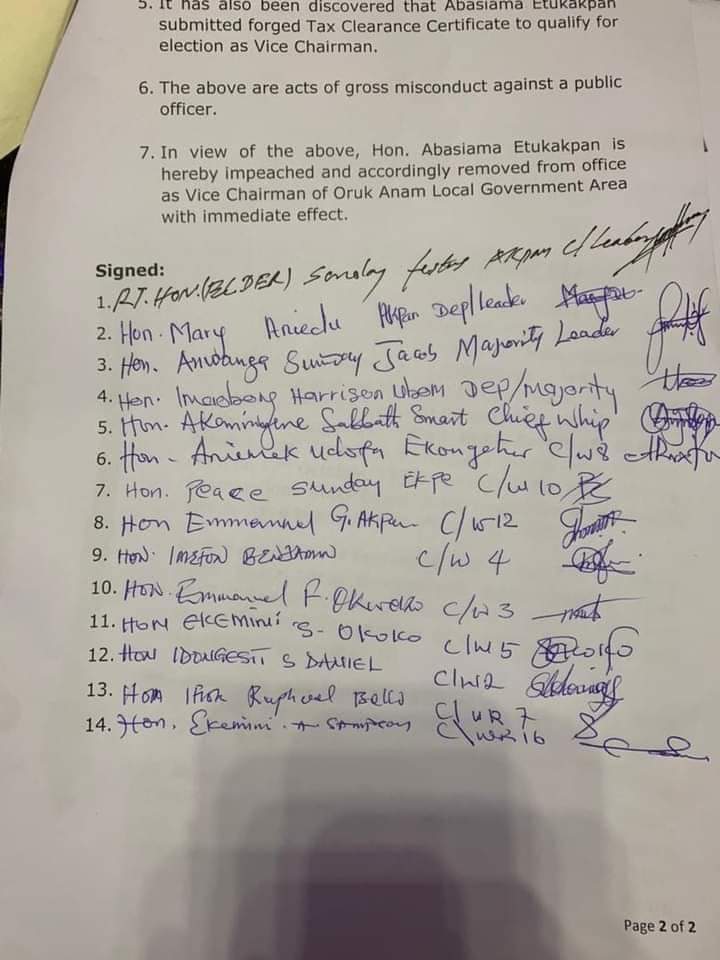 5. It has also been discovered that Abasiama Etukakpan
submitted forged Tax Clearance Certificate to qualify for
election as Vice Chairman.
6. The above are acts of gross misconduct against a public
officer.
7. In view of the above, Hon. Abasiama Etukakpan is
hereby impeached and accordingly removed from office
as Vice Chairman of Oruk Anam Local Government Area
with immediate effect.
Signed:
1. RT. HON. (ELDER) Sunday festus Akpan C/Leader
2. Hon. Mary Aniedu Akpan Dep/Leader
3. Hon. Sunday Jacob Majority Leader
4. Hon. Harrison Ubom Dep/Majority
5. Hon. Sabbath Smart Chief Whip
6. Hon - Udofa C/W8
7. Hon. Peace Sunday Ekpe C/W 10
8. Hon Emmanuel G. Akpan C/W12
9. HON. C/W 4
10. HON. Emmanuel F. C/W 3
11. HON EKEMINI S. OKOKO C/W 5
12. HON S DANIEL C/W12
13. HON Raphael C/WR 7
14. Hon. Ekemini . A SAMPSON C/WR 16
Page 2 of 2